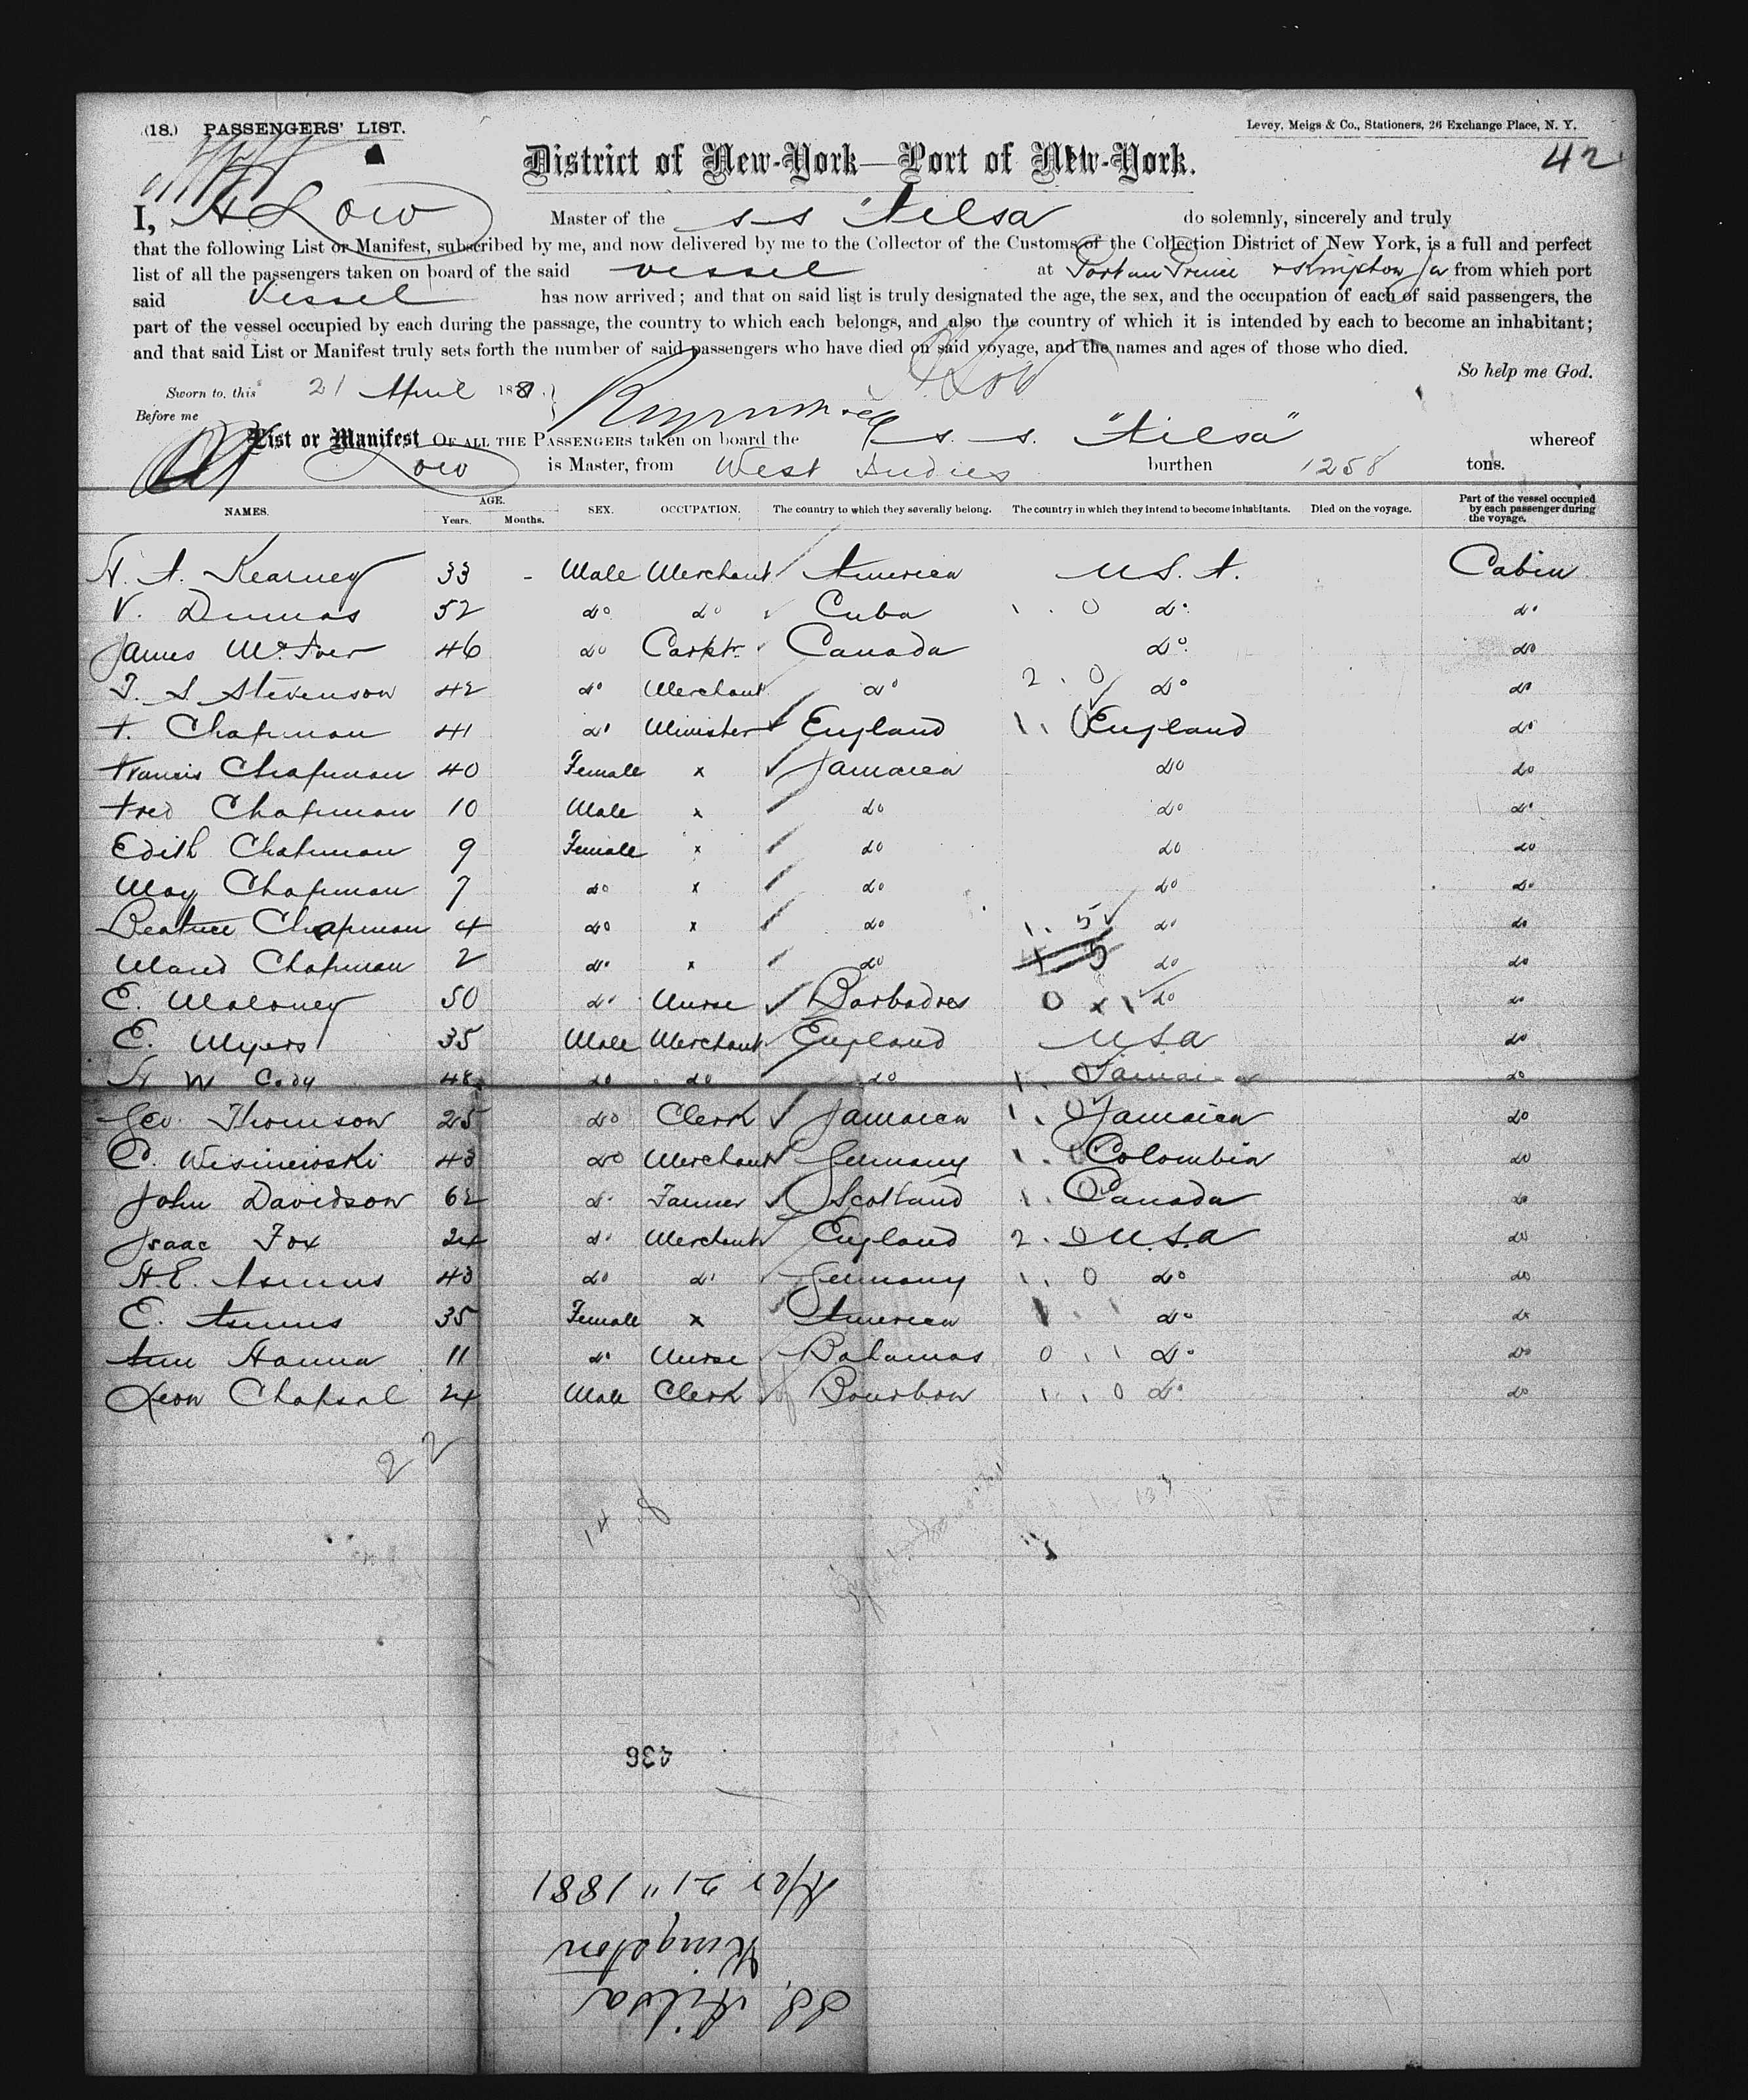 (18.) PASSENGERS' LIST.
Levey, Meigs & Co., Stationers, 26 Exchange Place, N. Y.
42
District of New-York—Port of New-York.
I, A Low Master of the s s "Ailsa do solemnly, sincerely and truly
that the following List or Manifest, subscribed by me, and now delivered by me to the Collector of the Customs of the Collection District of New York, is a full and perfect
list of all the passengers taken on board of the said vessel at Port au Prince & Kingston Ja from which port
said vessel has now arrived; and that on said list is truly designated the age, the sex, and the occupation of each of said passengers, the
part of the vessel occupied by each during the passage, the country to which each belongs, and also the country of which it is intended by each to become an inhabitant;
and that said List or Manifest truly sets forth the number of said passengers who have died on said voyage, and the names and ages of those who died.
So help me God.
Sworn to, this 21 April 1881
Before me
List or Manifest OF ALL THE PASSENGERS taken on board the s. s. "Ailsa" whereof
Low is Master, from West Indies burthen 1258 tons.
NAMES. AGE. Years. Months. SEX. OCCUPATION. The country to which they severally belong. The country in which they intend to become inhabitants. Died on the voyage. Part of the vessel occupied by each passenger during the voyage.
A. A. Kearney 33 - Male Merchant America U S. A. Cabin
V. Dumas 52 do do Cuba 1. 0 do do
James McIver 46 do Carptr Canada do do
T. S Stevenson 42 do Merchant do 2. 0 do do
A. Chapman 41 do Minister England 1. 0 England do
Francis Chapman 40 Female x Jamaica do do
Fred Chapman 10 Male x do do do
Edith Chapman 9 Female x do do do
May Chapman 7 do x do do do
Beatrice Chapman 4 do x do 1. 5 do do
Maud Chapman 2 do x do 1 5 do do
E. Maloney 50 do Nurse Barbadoes 0 x 1 do do
E. Myers 35 Male Merchant England U S A do
A W Cody 48 do do do 1. Jamaica do
Geo. Thomson 25 do Clerk Jamaica 1. 0 Jamaica do
C. Wisinewski 43 do Merchant Germany 1. 0 Colombia do
John Davidson 62 do Farmer Scotland 1. 0 Canada do
Isaac Fox 24 do Merchant England 2. 0 U.S.A do
H E. Asmus 43 do do Germany 1. 0 do do
E. Asmus 35 Female x America 1. 1 do do
Ann Hanna 11 do Nurse Bahamas 0. 1 do do
Leon Chapsal 24 Male Clerk Bourbon 1. 1 0 do do
22
14 8
436
SS. Ailsa
Kingston
Apr 21" 1881